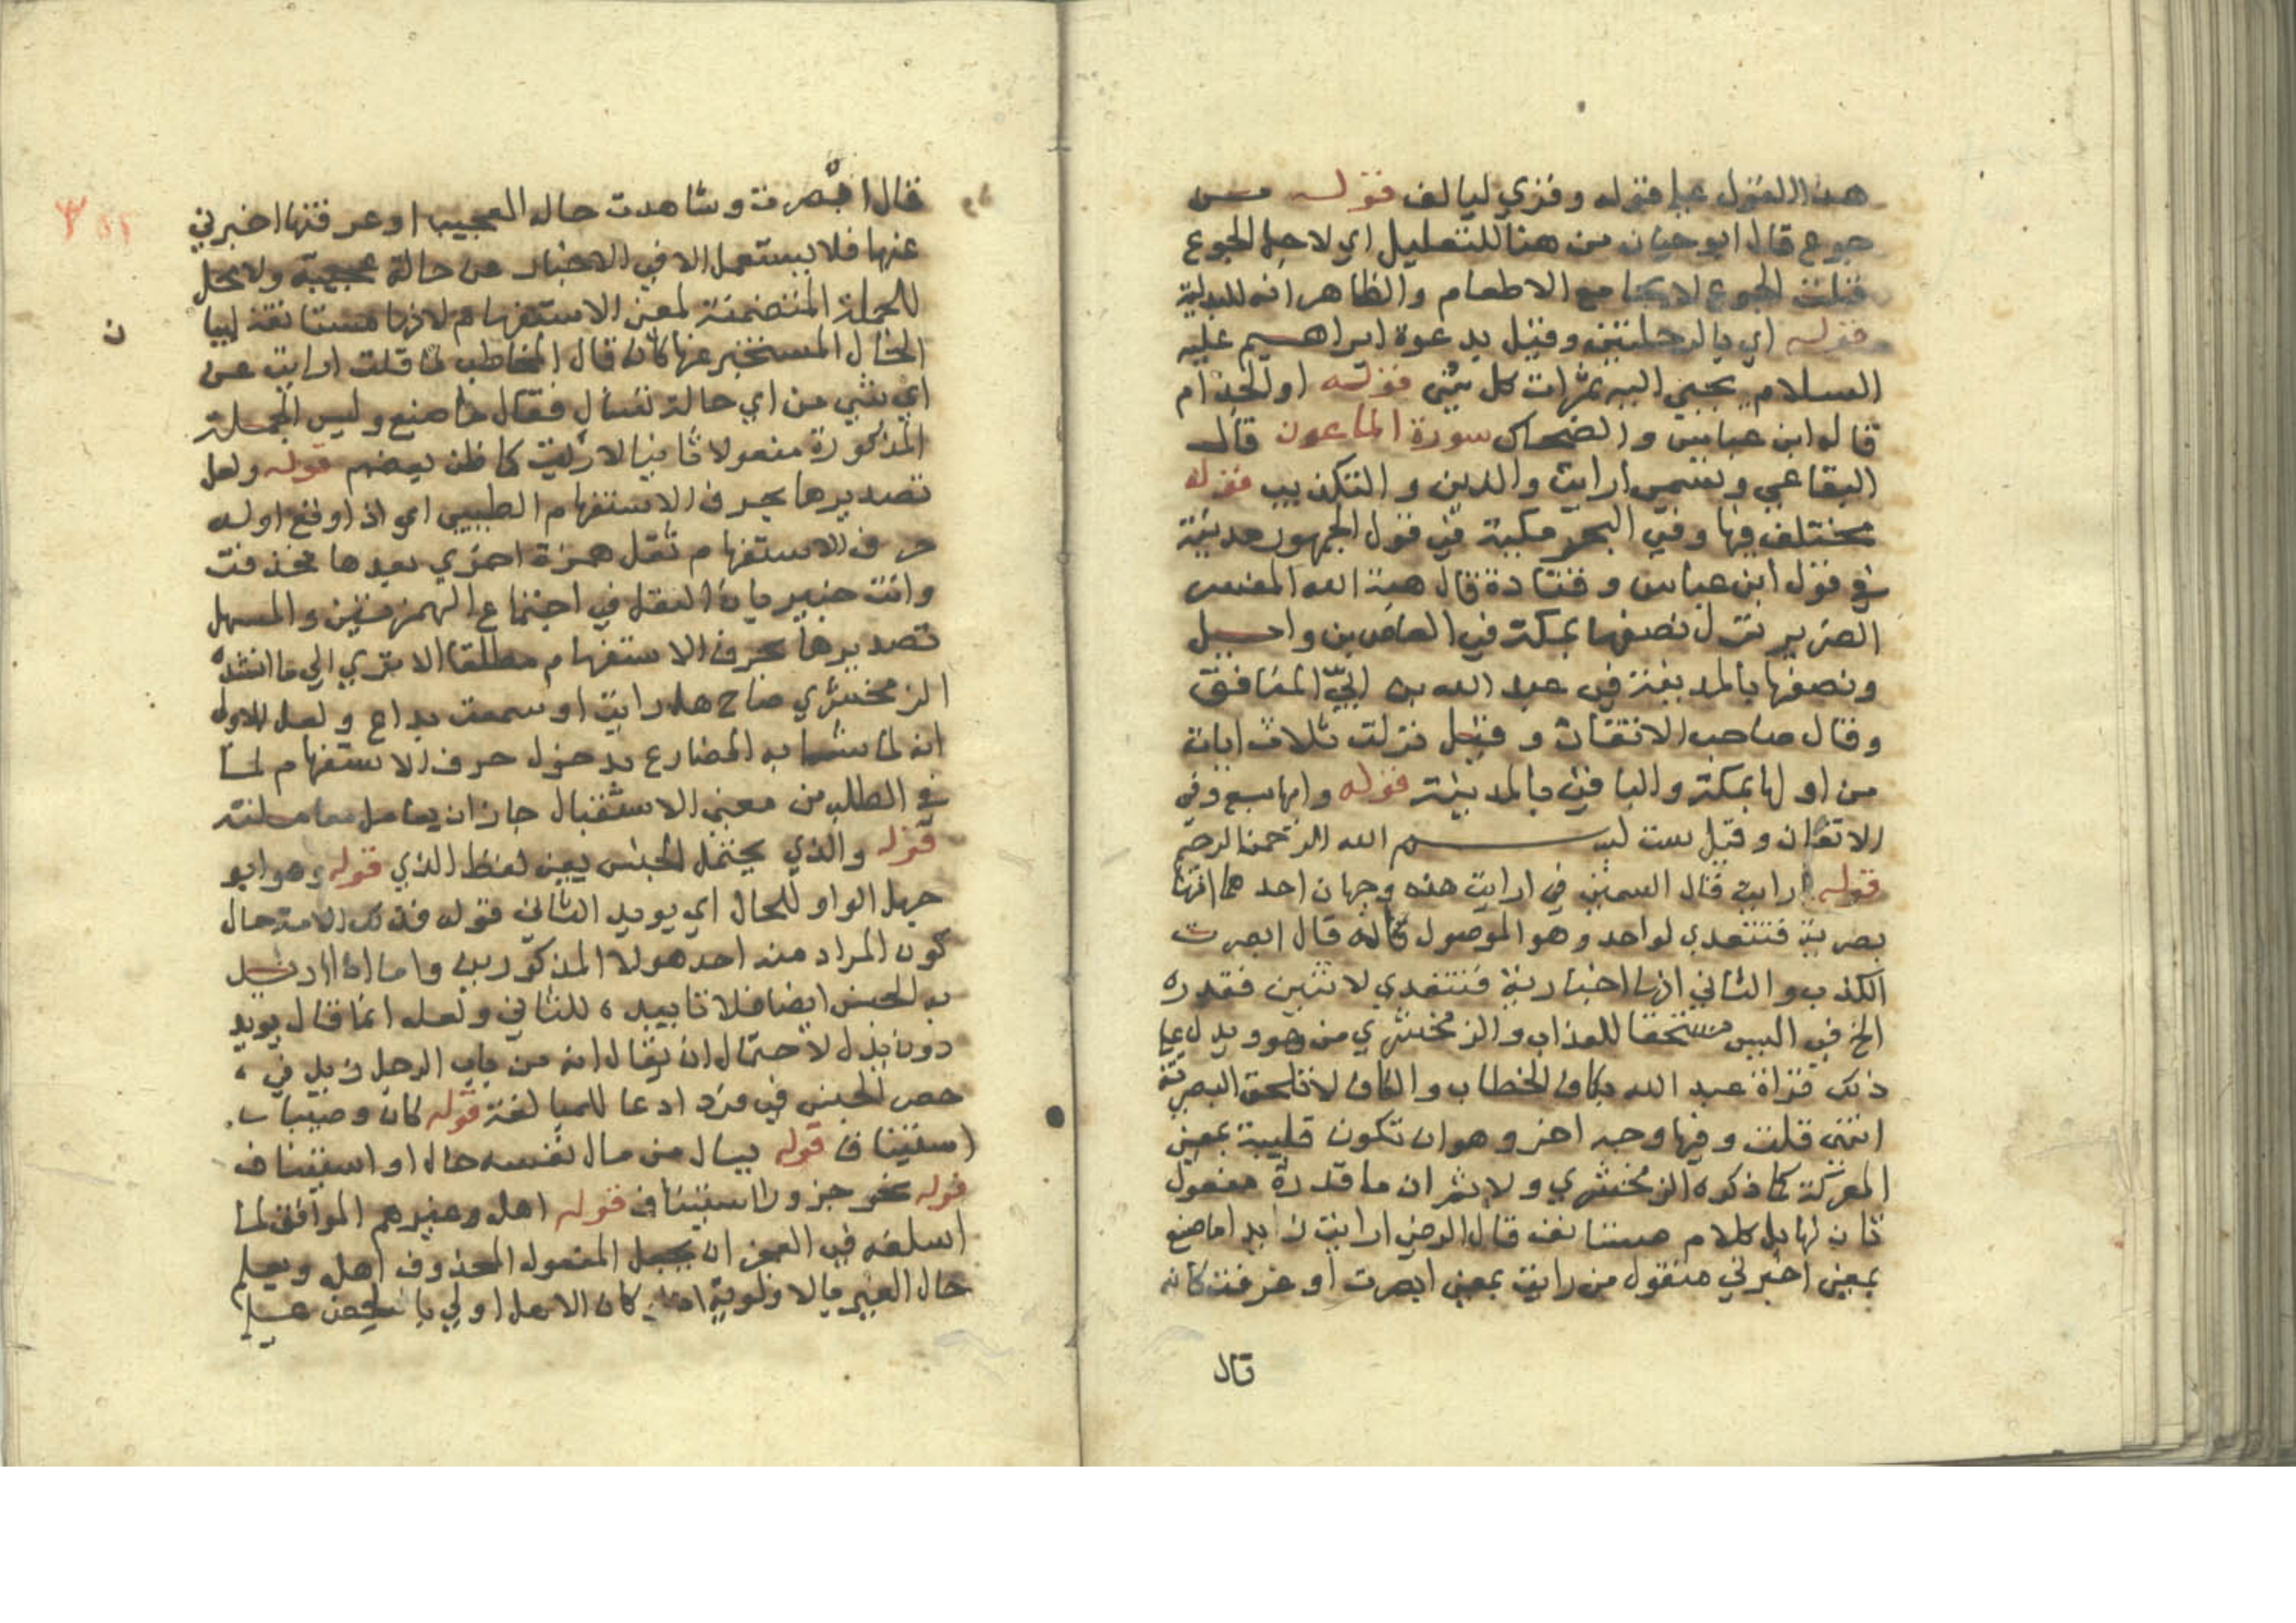 هذا القول علي قوله وقري ليالف قوله من
جوع قال ابو حيان من هنا للتعليل اي لاجل الجوع
قلت الجوع لا يجامع الاطعام والظاهر انه للبدلية
قوله اي بالرحلتين وقيل بدعوة ابراهيم عليه
السلام يجبي اليه ثمرات كل شي قوله او الجذام
قاله ابن عباس والضحاك سورة الماعون قال
البقاعي وتسمي ارايت والدين والتكذيب قوله
مختلف فيها وفي البحر مكية في قول الجمهور مدنية
في قول ابن عباس وقتادة قال هبة الله المفسر
الضرير نزل نصفها بمكة في العاص بن وايل
ونصفها بالمدينة في عبد الله بن ابيّ المنافق
وقال صاحب الاتقان وقيل نزلت ثلاث ايات
من اولها بمكة والباقي بالمدينة قوله وايها سبع وفي
الاتقان وقيل ست بسم الله الرحمن الرحيم
قوله ارايت قال السمين في ارايت هذه وجهان احدهما انها
بصرية فتتعدي لواحد وهو الموصول كانه قال ابصرت
المكذب والثاني انها اخبارية فتتعدي لاثنين فقدره
الخ في اليس مستحقا للعذاب والزمخشري من هو ويدل علي
ذلك قراة عبد الله بكاف الخطاب والكاف لا تلحق البصرية
انتهي قلت وفيها وجه اخر وهو ان تكون قلبية بمعني
المعرفة كما ذكره الزمخشري ولا يثمر ان ما قدرة مفعول
ثان لها بل كلام مستانف قال الرضي ارايت زايدا ما صنع
بمعني اخبرني منقول من رايت بمعني ابصرت او عرفت كانه
قال
قال ابصرت وشاهدت حاله العجيبة او عرفتها اخبرني
عنها فلا يستعمل الا في الاخبار عن حالة عجيبة ولا محل
للجملة المتضمنة لمعني الاستفهام لانها مستانفة لبيا
ن
الحال المستخبر عنها كان قال المخاطب لما قلت ارايت عن
اي شي من اي حالة تسال فقال ما صنع وليس الجملة
المذكورة مفعولا ثانيا لارايت كما ظن بعضهم قوله ولعل
تصديرها بحرف الاستفهام الطيبي اي اذ اوقع اوله
حرف الاستفهام ثقل همزة اخري بعدها فحذفت
وانت خبير بان الثقل في اجتماع الهمزتين والمسهل
تصديرها بحرف الاستفهام مطلقا الا تري الي ما انشده
الزمخشري صاح هل رايت او سمعت براع ولعل الاولي
انه لما شابه المضارع بدخول حرف الاستفهام لما
في الطلب من معني الاستقبال جاز ان يعامل معاملته
قوله والذي يحتمل الجنس يعين لفظ الذي قوله وهو ابو
جهل الواو للحال اي يويد الثاني قوله فذلك الاية حال
كون المراد منه احد هولا المذكورين واما اذا اريد
به الجنس ايضا فلا تاييده للثاني ولعله انما قال يويد
دون يدل لاحتمال ان يقال انه من باب الرجل زيد في
حصر الجنس في فرد ادعا للمبالغة قوله كان وصيا ب
استيناف قوله يسال من مال نفسه حال او استيناف
قوله نحر جزورا استيناف قوله اهله وغيرهم الموافق لما
اسلفه في الفجر ان يجعل المفعول المحذوف اهله ويعلم
حال الغير بالاولوية كان الاهل اولي بالحض علي